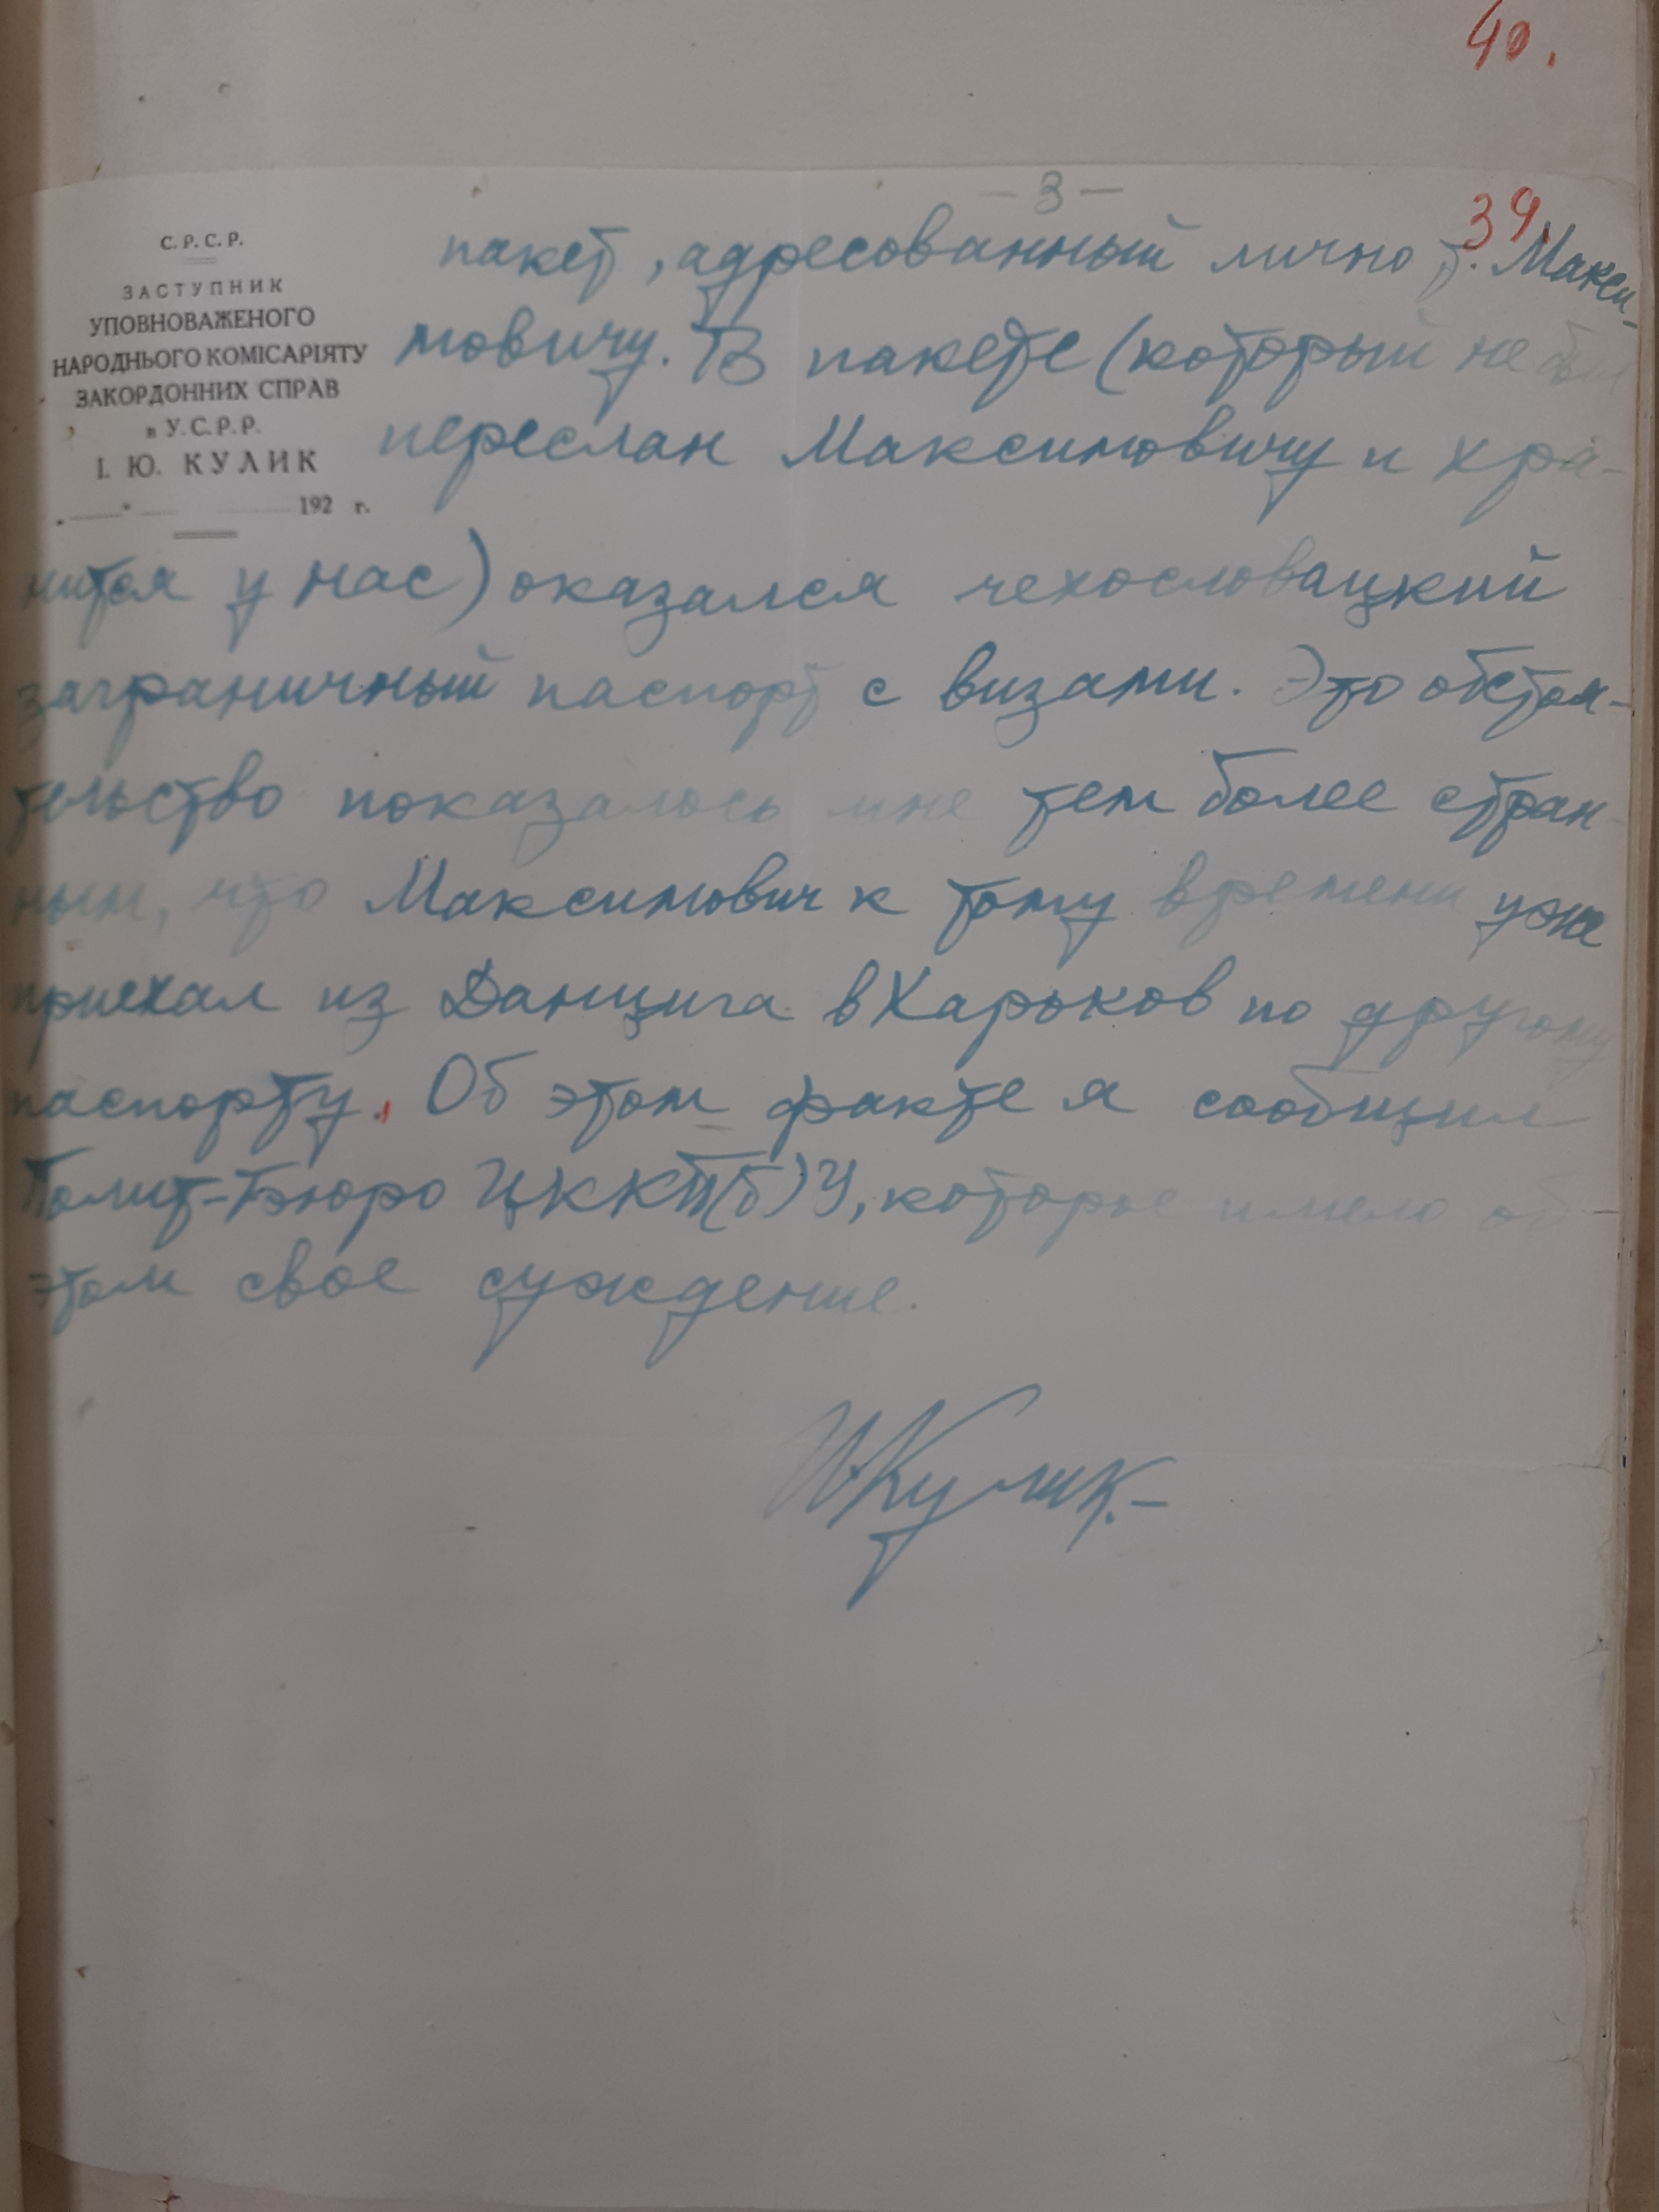 40.
- 3 -
39.
С. Р. С. Р.
ЗАСТУПНИК
УПОВНОВАЖЕНОГО
НАРОДНЬОГО КОМІСАРІЯТУ
ЗАКОРДОННИХ СПРАВ
в У. С. Р. Р.
І. Ю. КУЛИК
„ " 192 г.
пакет, адресованный лично т. Макси-
мовичу. В пакете (который не был
переслан Максимовичу и хра-
нится у нас) оказался чехословацкий
заграничный паспорт с визами. Это обстоя-
тельство показалось мне тем более стран-
ным, что Максимович к тому времени уже
приехал из Данцига в Харьков по другому
паспорту. Об этом факте я сообщил
Полит-Бюро ЦККП(б)У, которое имело об
этом свое суждение.
И Кулик. -